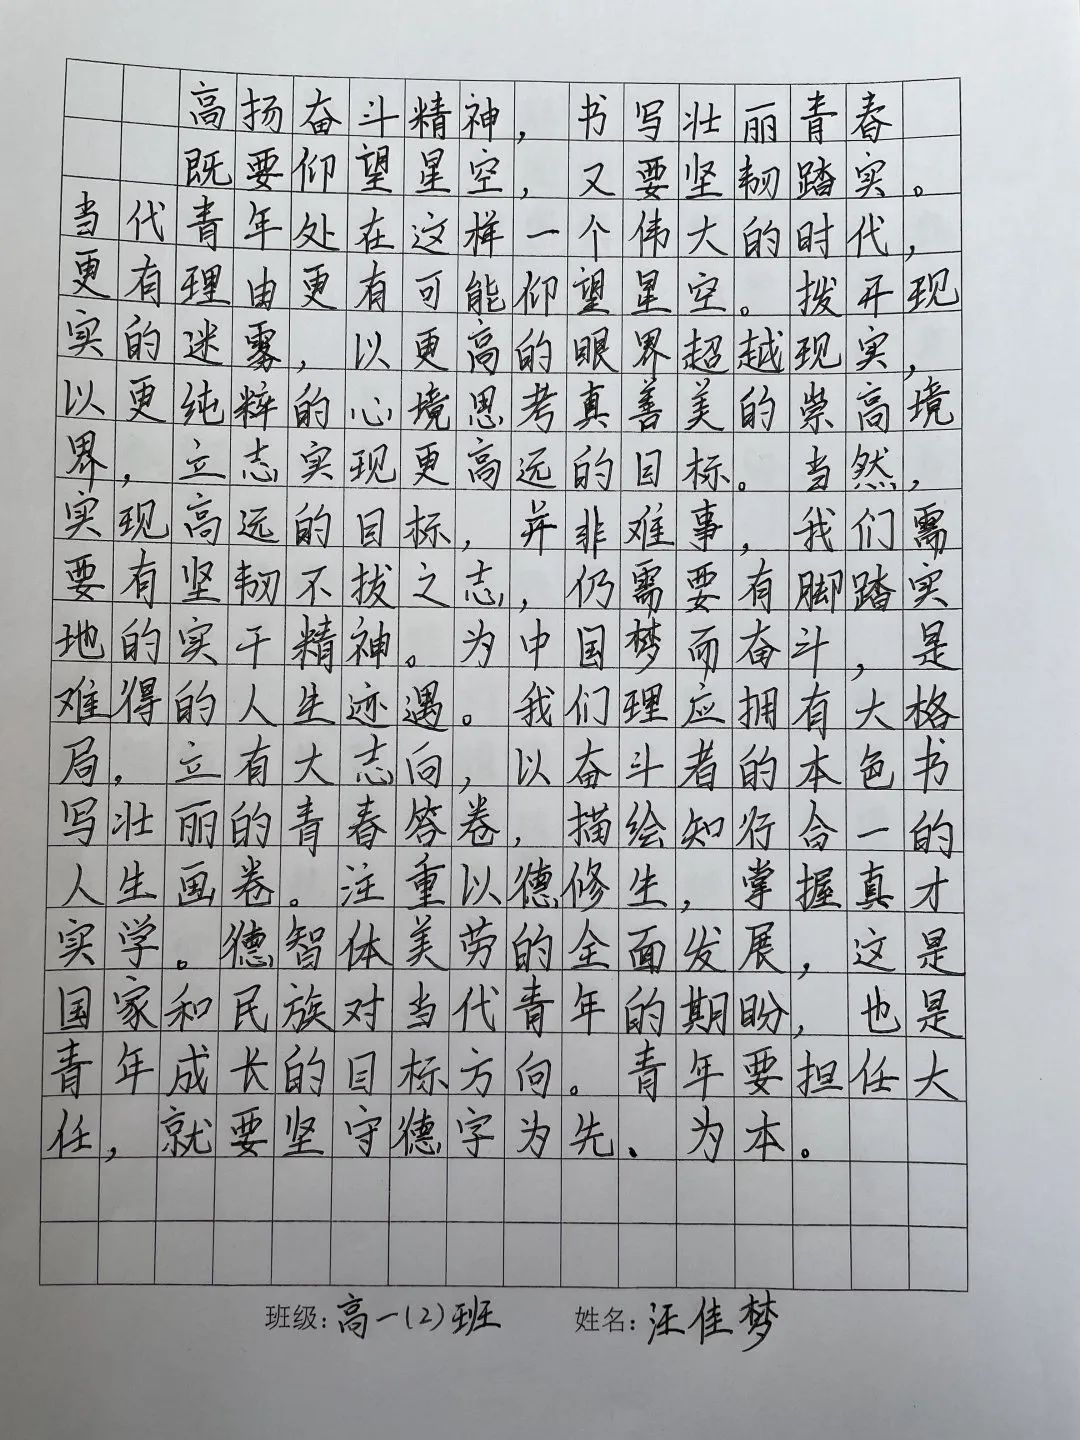 高扬奋斗精神，书写壮丽青春
既要仰望星空，又要坚韧踏实。
当代青年处在这样一个伟大的时代，
更有理由更有可能仰望星空。拨开现
实的迷雾，以更高的眼界超越现实，
以更纯粹的心境思考真善美的崇高境
界，立志实现更高远的目标。当然，
实现高远的目标，并非难事，我们需
要有坚韧不拔之志，仍需要有脚踏实
地的实干精神。为中国梦而奋斗，是
难得的人生迹遇。我们理应拥有大格
局，立有大志向，以奋斗者的本色书
写壮丽的青春答卷，描绘知行合一的
人生画卷。注重以德修生，掌握真才
实学。德智体美劳的全面发展，这是
国家和民族对当代青年的期盼，也是
青年成长的目标方向。青年要担任大
任，就要坚守德字为先、为本。
班级：高一(2)班 姓名：汪佳梦